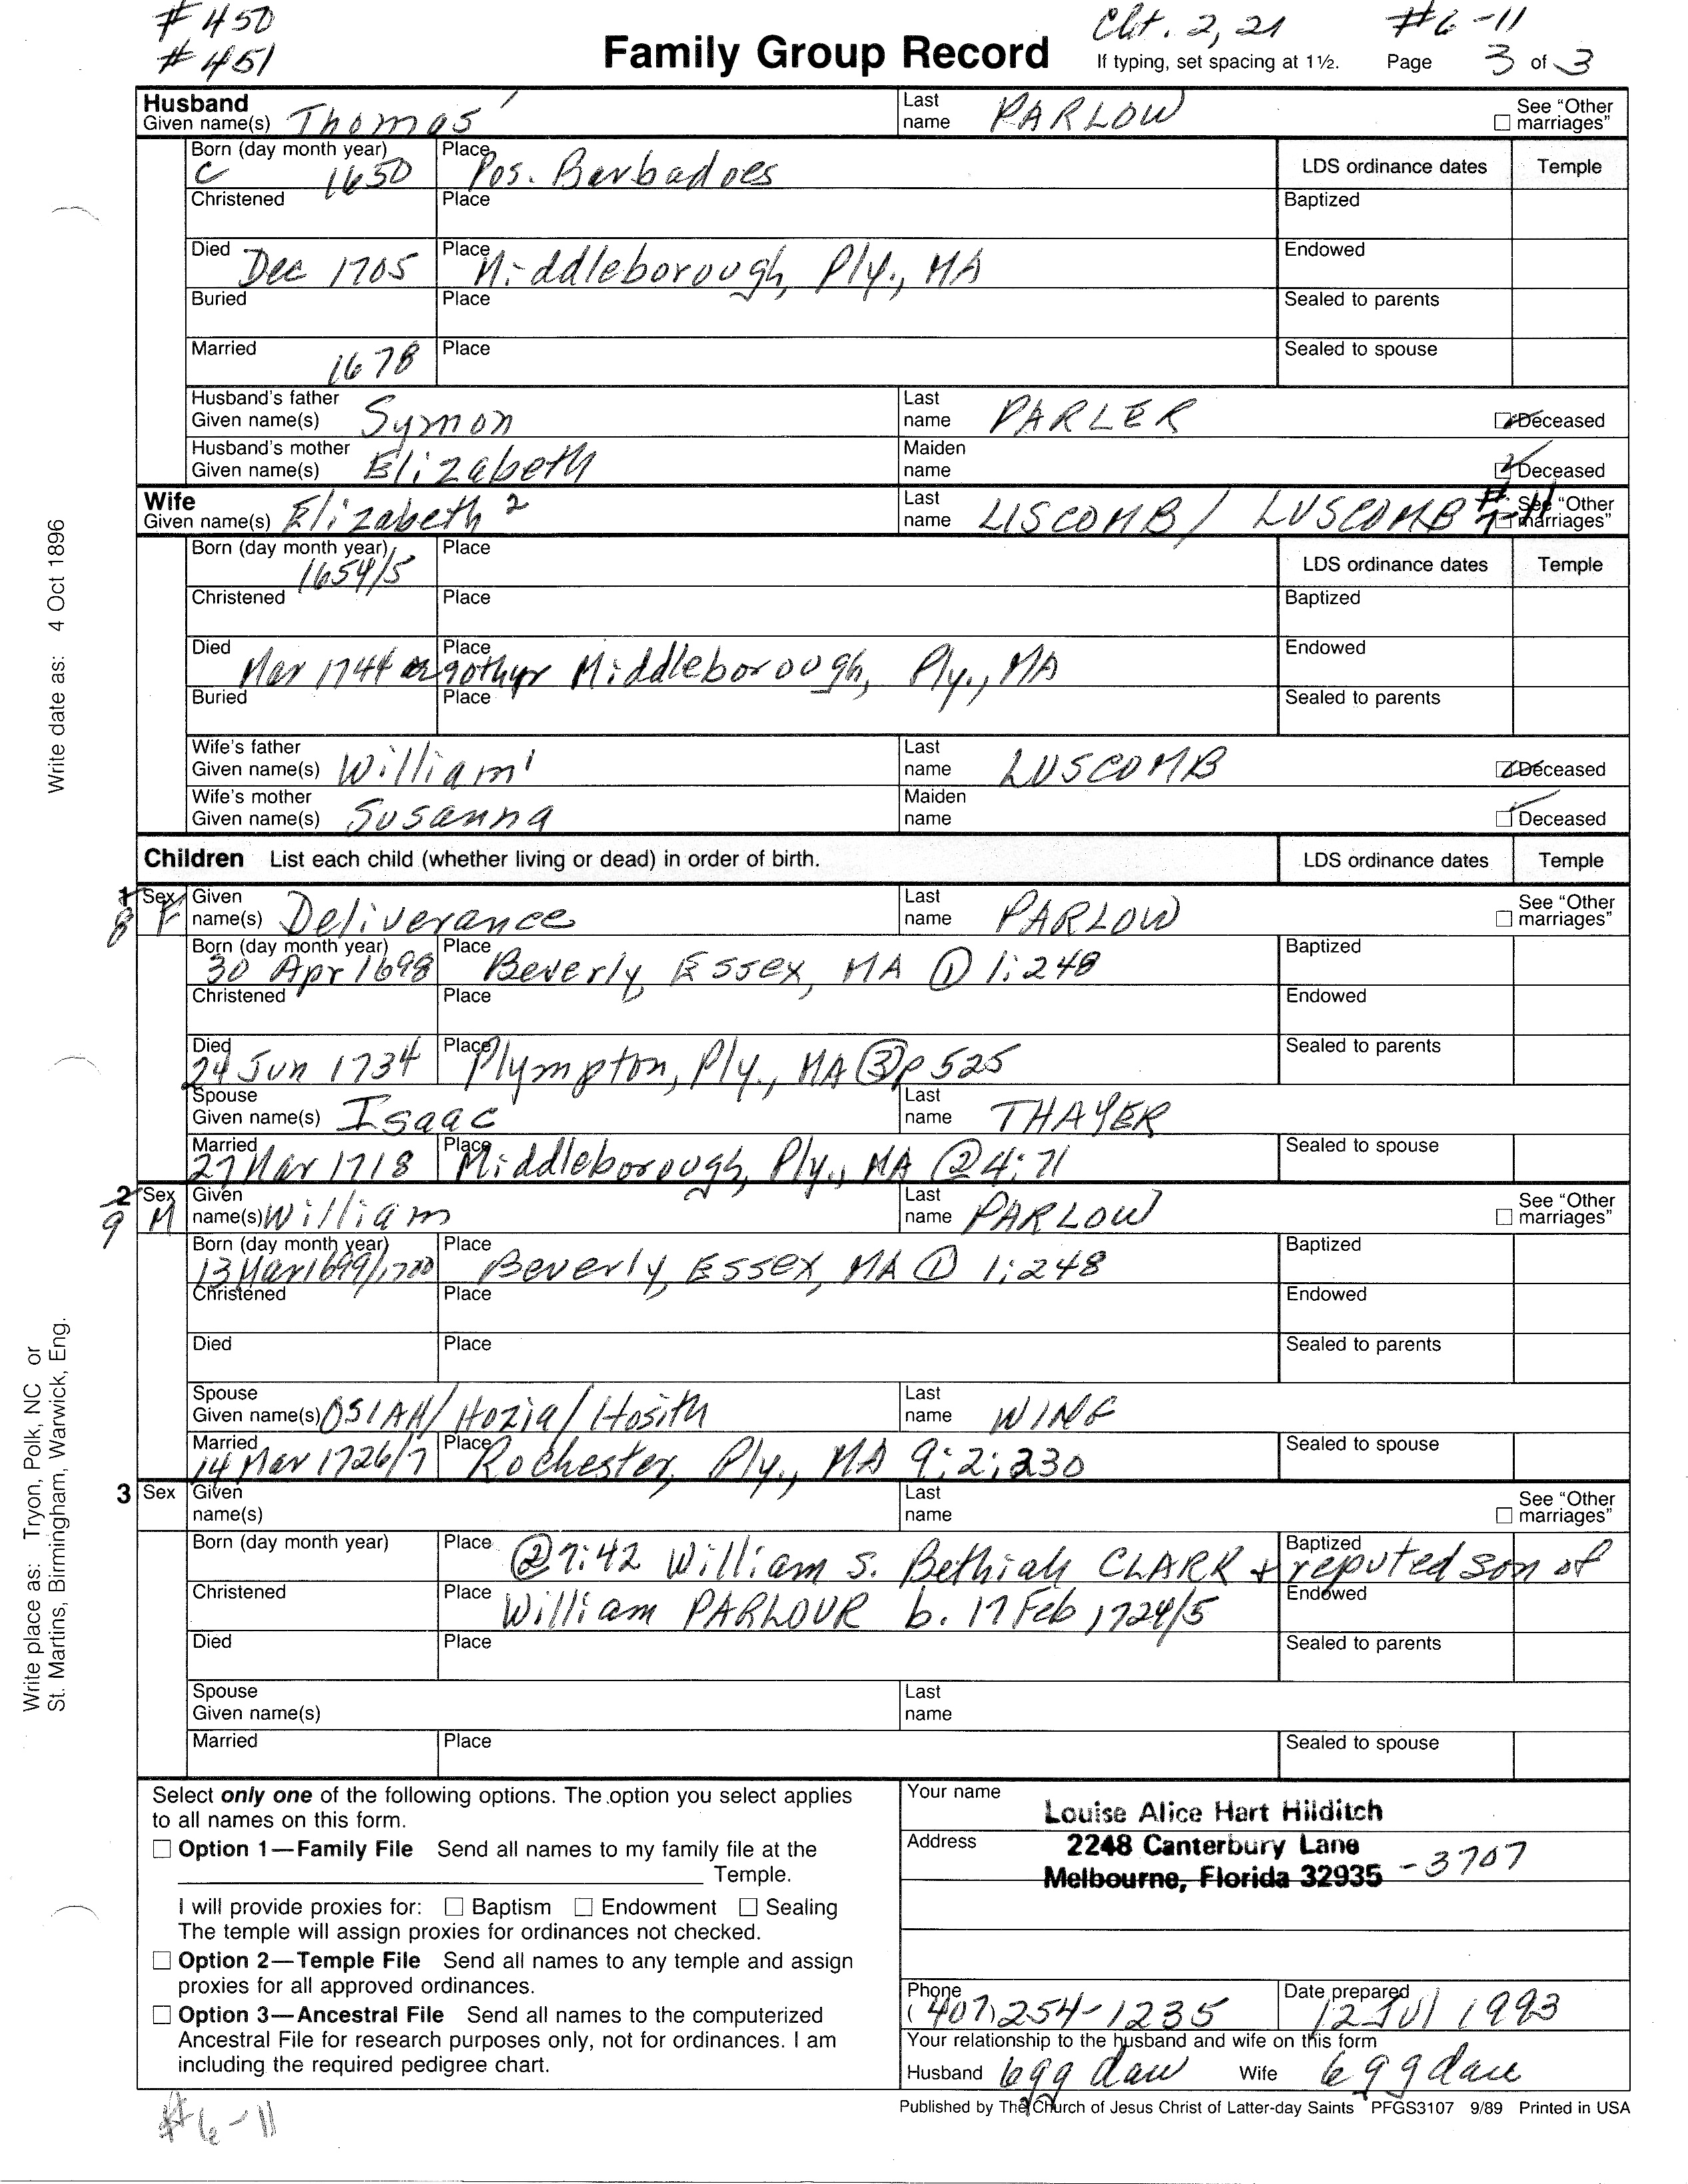 # 450
# 451
Family Group Record
Cht. 2, 21
#6-11
If typing, set spacing at 1½. Page 3 of 3
Husband
Given name(s) Thomas Last name PARLOW See "Other marriages"
Born (day month year) C 1650 Place Pos. Barbadoes LDS ordinance dates Temple
Christened Place Baptized
Died Dec 1705 Place Middleborough, Ply., MA Endowed
Buried Place Sealed to parents
Married 1678 Place Sealed to spouse
Husband's father Given name(s) Symon Last name PARLER Deceased
Husband's mother Given name(s) Elizabeth Maiden name Deceased
Wife
Given name(s) Elizabeth 2 Last name LISCOMB / LUSCOMB #7-11 See "Other marriages"
Born (day month year) 1654/5 Place LDS ordinance dates Temple
Christened Place Baptized
Died Mar 1744 Place 90thyr Middleborough, Ply., MA Endowed
Buried Place Sealed to parents
Wife's father Given name(s) William 1 Last name LUSCOMB Deceased
Wife's mother Given name(s) Susanna Maiden name Deceased
Children List each child (whether living or dead) in order of birth. LDS ordinance dates Temple
1 8 Sex F Given name(s) Deliverance Last name PARLOW See "Other marriages"
Born (day month year) 30 Apr 1698 Place Beverly, Essex, MA ① 1:248 Baptized
Christened Place Endowed
Died 24 Jun 1734 Place Plympton, Ply., MA ③ p 525 Sealed to parents
Spouse Given name(s) Isaac Last name THAYER
Married 27 Mar 1718 Place Middleborough, Ply., MA ② 4:71 Sealed to spouse
2 9 Sex M Given name(s) William Last name PARLOW See "Other marriages"
Born (day month year) 13 Mar 1699/1700 Place Beverly, Essex, MA ① 1:248 Baptized
Christened Place Endowed
Died Place Sealed to parents
Spouse Given name(s) OSIAH/Hozia/Hosith Last name WING
Married 14 Mar 1726/7 Place Rochester, Ply., MA 9:2:330 Sealed to spouse
3 Sex Given name(s) Last name See "Other marriages"
Born (day month year) Place ② 7:42 William s. Bethiah CLARK + reputed son of Baptized
Christened Place William PARLOUR b. 17 Feb 1724/5 Endowed
Died Place Sealed to parents
Spouse Given name(s) Last name
Married Place Sealed to spouse
Select only one of the following options. The option you select applies
to all names on this form.
Option 1—Family File Send all names to my family file at the
Temple.
I will provide proxies for: Baptism Endowment Sealing
The temple will assign proxies for ordinances not checked.
Option 2—Temple File Send all names to any temple and assign
proxies for all approved ordinances.
Option 3—Ancestral File Send all names to the computerized
Ancestral File for research purposes only, not for ordinances. I am
including the required pedigree chart.
Your name Louise Alice Hart Hilditch
Address 2248 Canterbury Lane
Melbourne, Florida 32935 -3707
Phone (407) 254-1235 Date prepared 12 Jul 1993
Your relationship to the husband and wife on this form
Husband 6gg dau Wife 6gg dau
Published by The Church of Jesus Christ of Latter-day Saints PFGS3107 9/89 Printed in USA
#6-11
Write date as: 4 Oct 1896
Write place as: Tryon, Polk, NC or
St. Martins, Birmingham, Warwick, Eng.